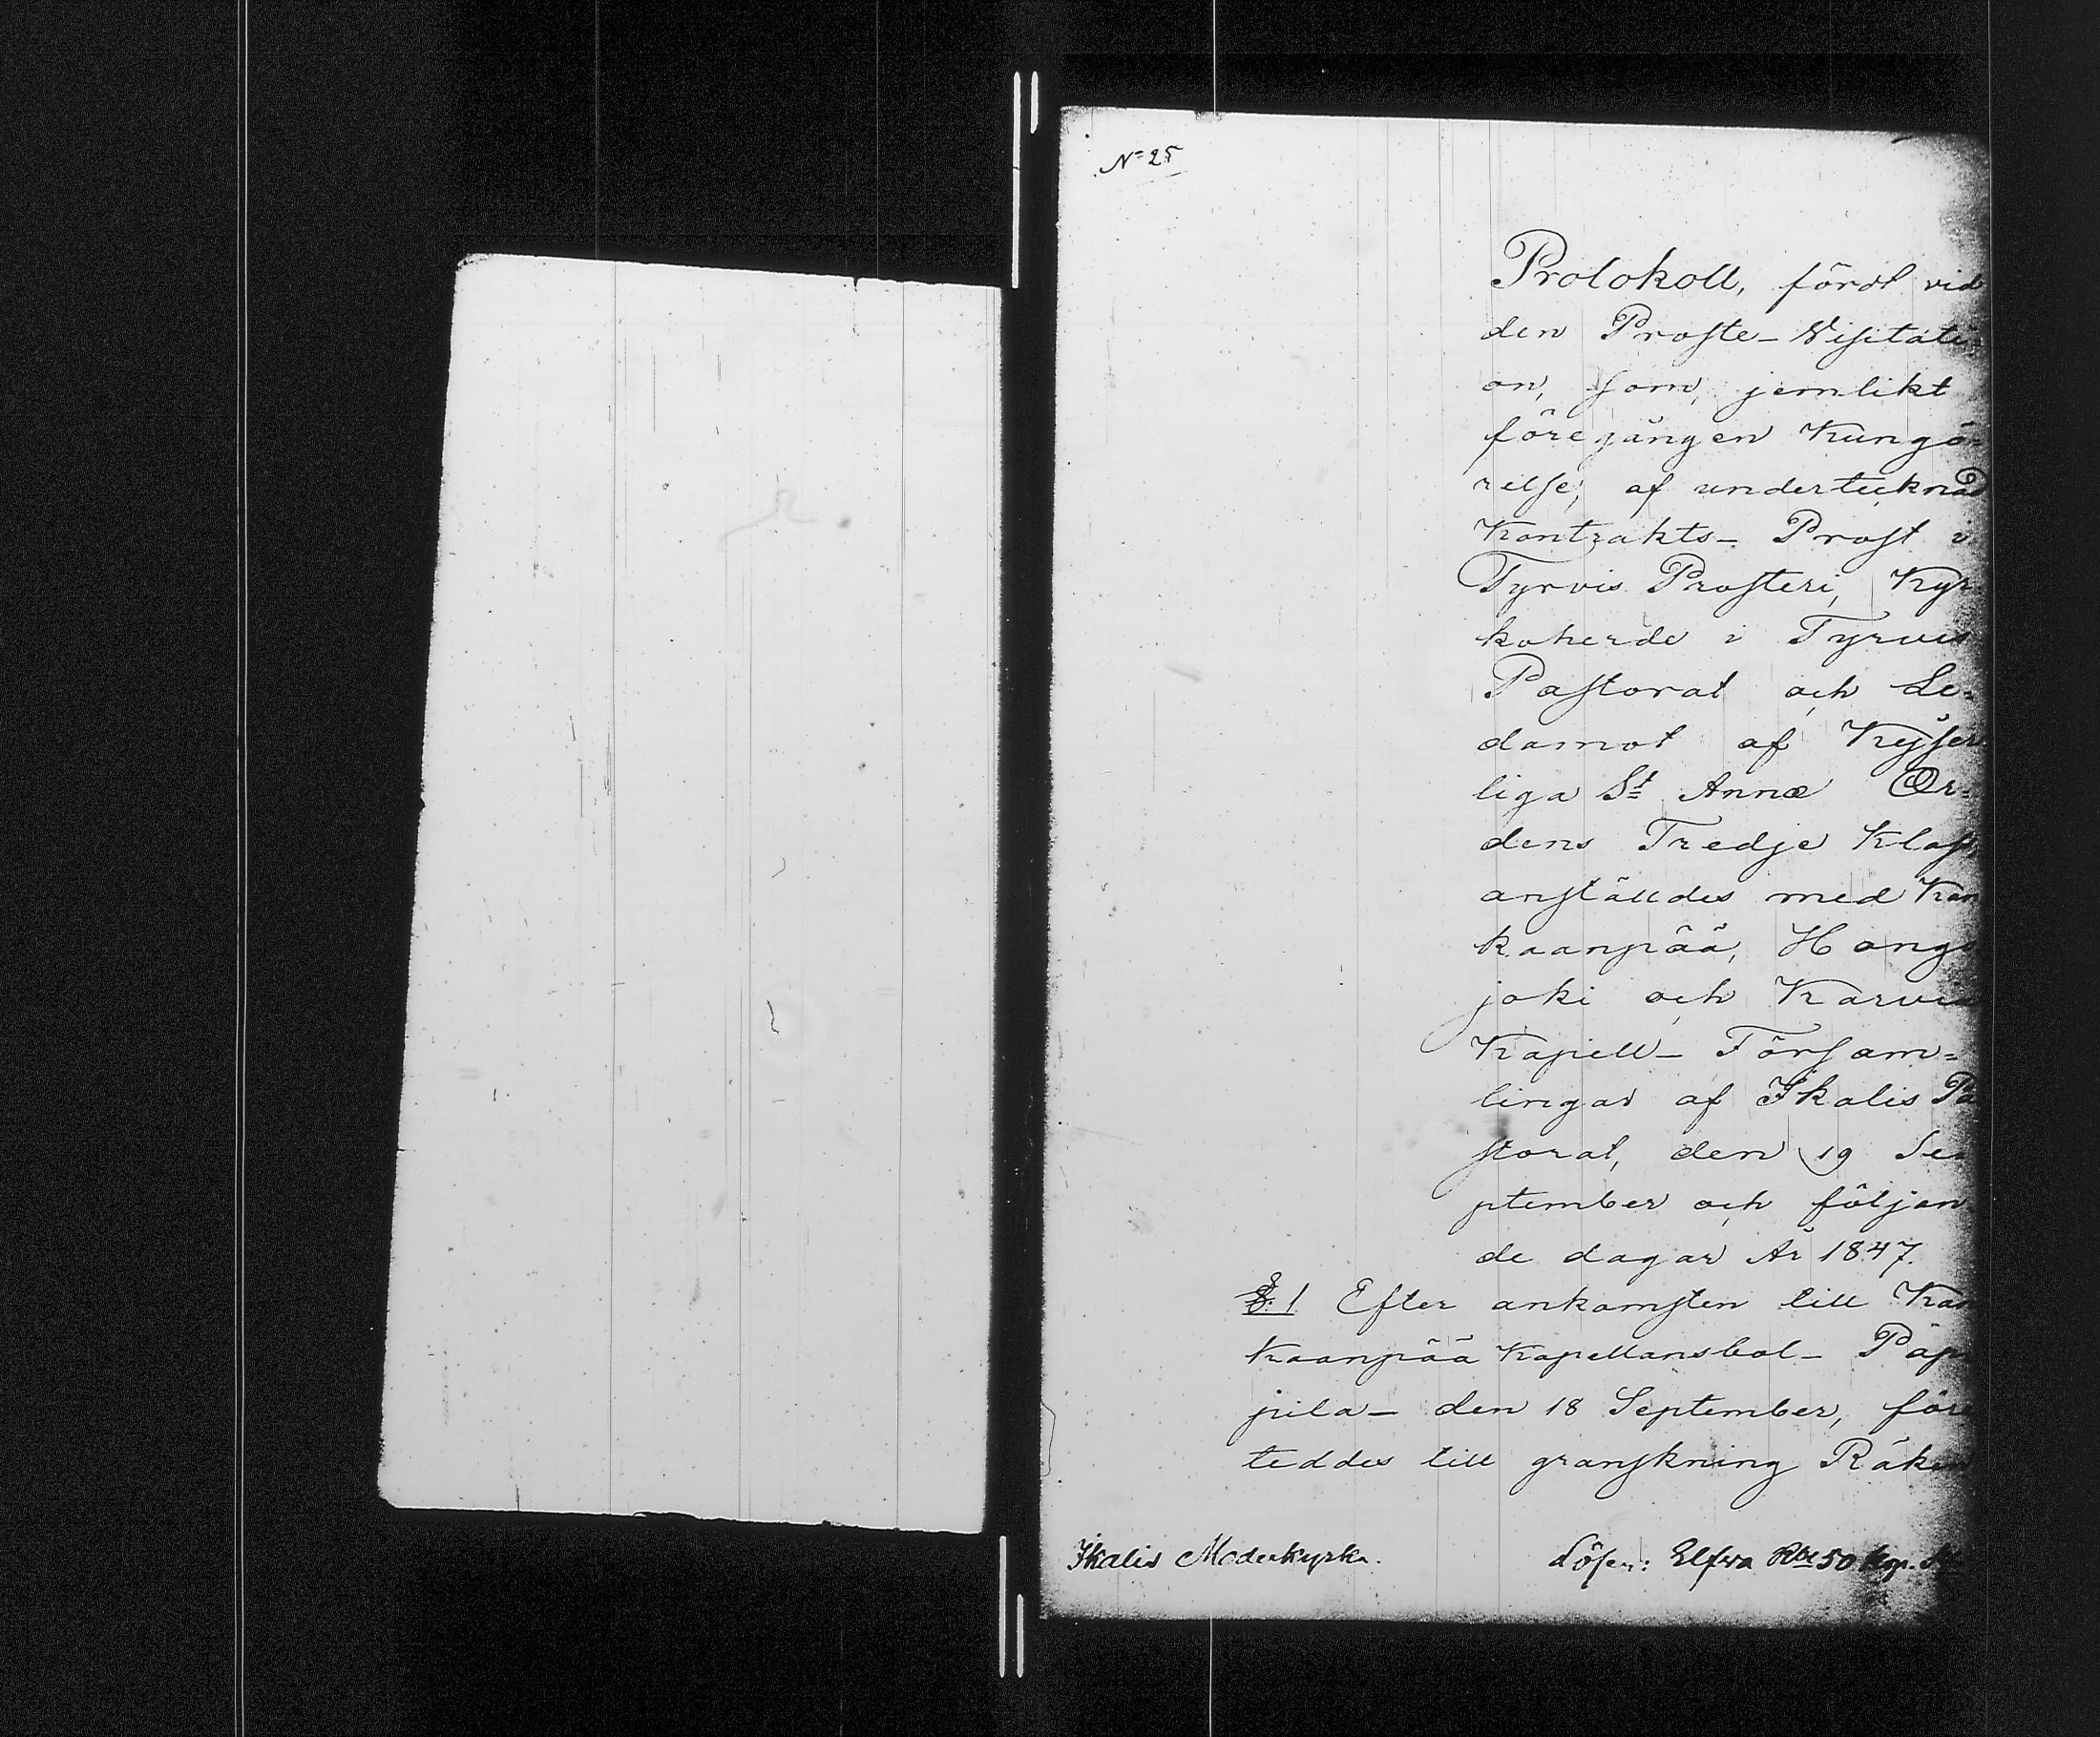 No 25
Protokoll, fördt vid
den Proste-Visitati-
on, som, jemlikt
föregången Kungö-
relse, af undertecknad
Kontrakts-Prost i
Tyrvis Prosteri, Kyr-
koherde i Tyrvis
Pastorat och Le-
damot af Kejser
liga St Annæ Or-
dens Tredje Klass
anställdes med Kan
kaanpää, Hongo
joki och Karvia
Kapell-Försam-
lingar af Ikalis Pa
storat, den 19 Se-
ptember och följan
de dagar År 1847.
§. 1 Efter ankomsten till Kan
kaanpää Kapellansbol- Pap
pila- den 18 September, före
teddes till granskning Räken
Ikalis Moderkyrka.
Lösen: Elfva Rbl 50 kop.